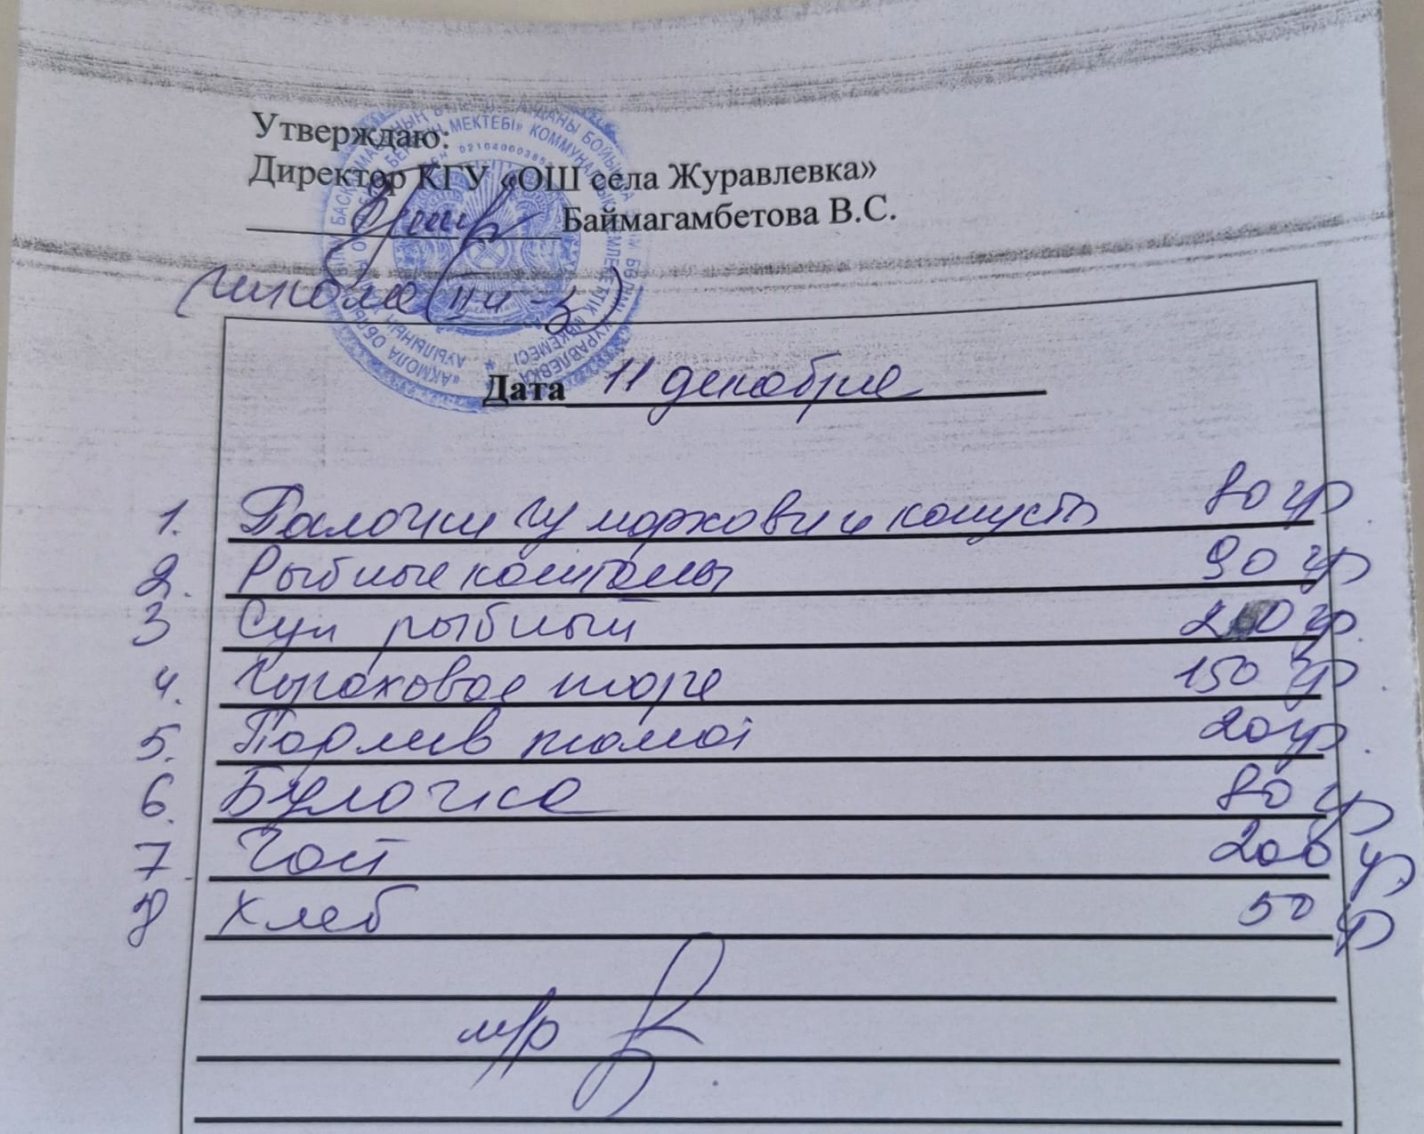 Утверждаю:
Директор КГУ «ОШ села Журавлевка»
Баймагамбетова В.С.
школа
Дата 11 декабря
1. Палочки из моркови и капусты 80 гр.
2. Рыбные 90 гр
3 Суп рыбный гр.
4. Гороховое пюре 150 гр.
5. Подлив томат 20 гр.
6. Булочка 80 гр
7 Чай 200 гр
8 Хлеб 50 гр
м/р